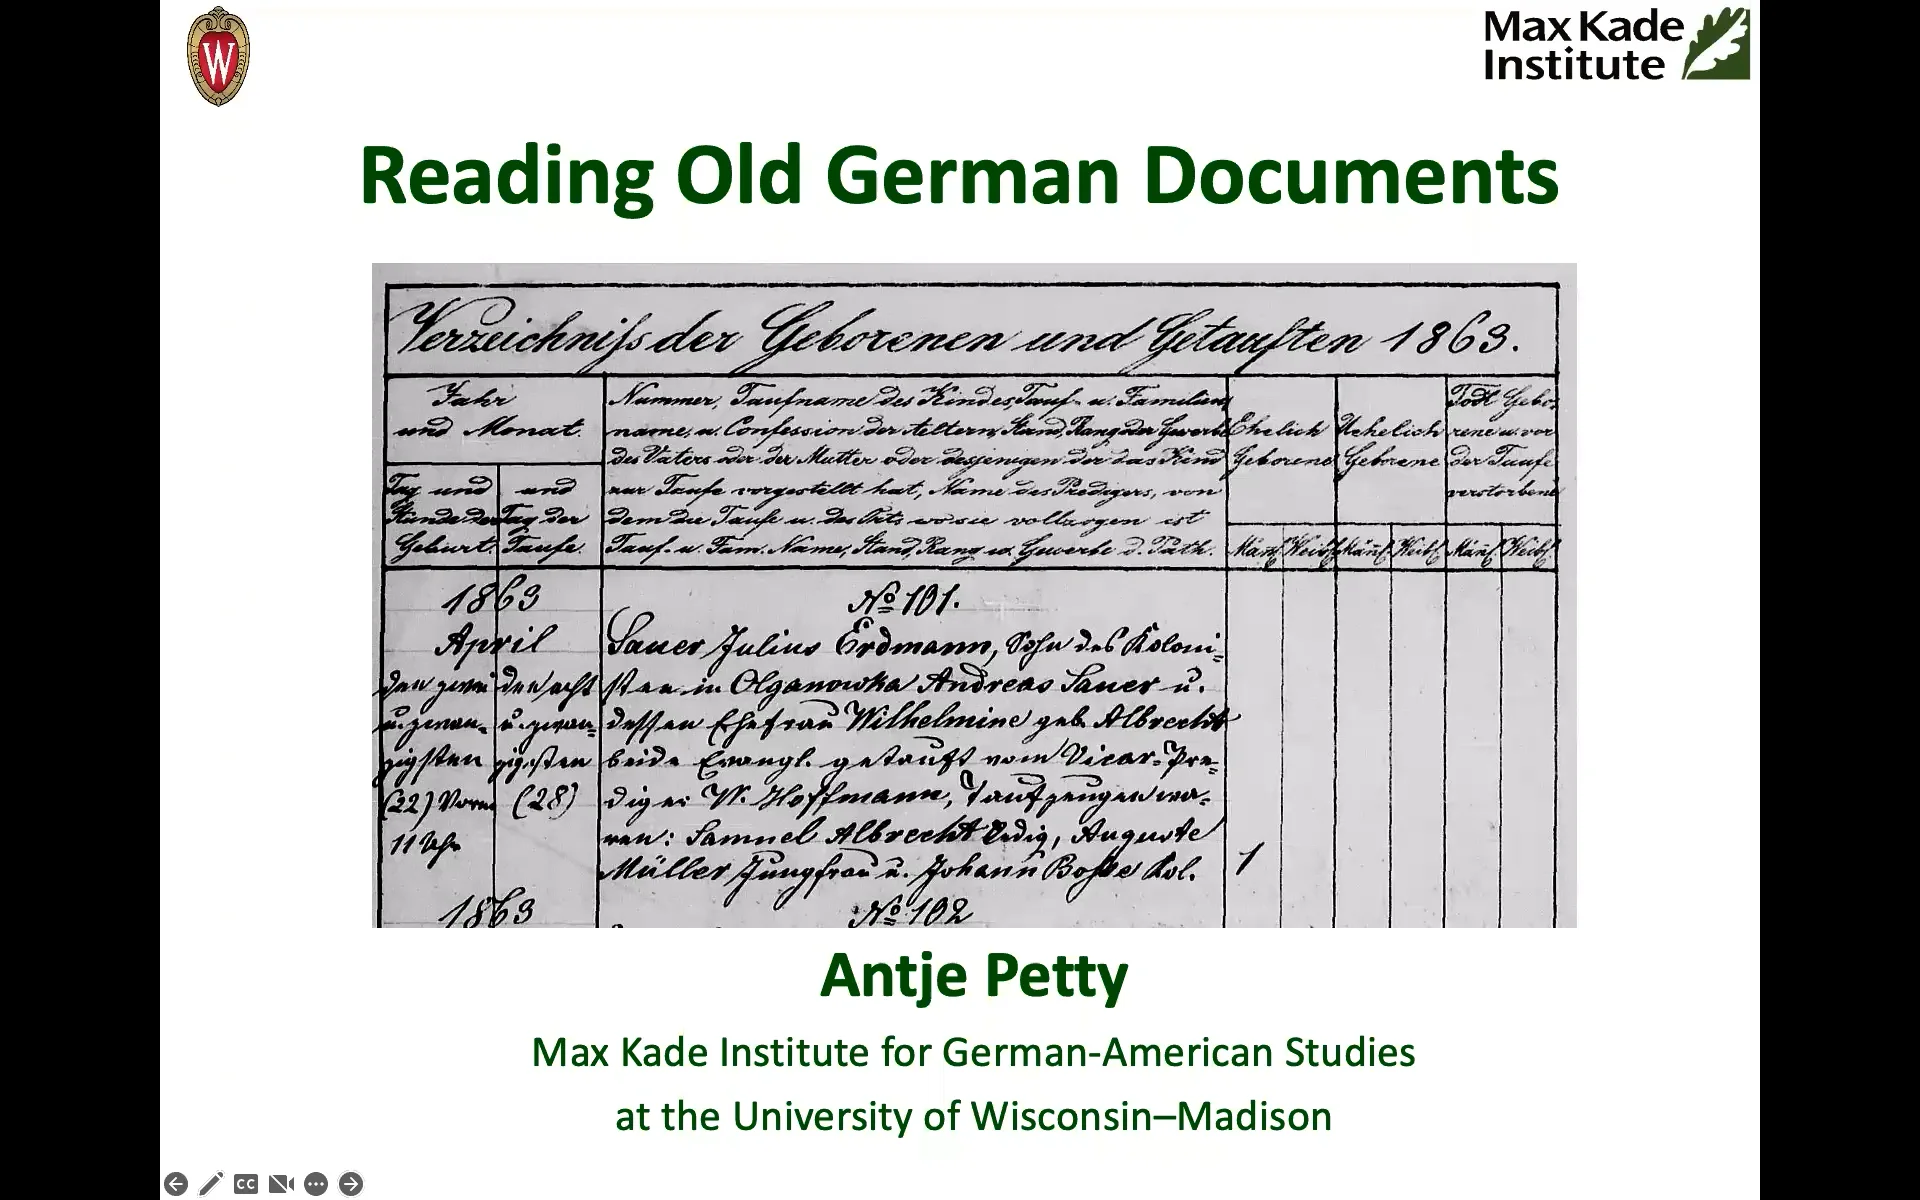 W
Max Kade
Institute
Reading Old German Documents
Verzeichniss der Geborenen und Getauften 1863.
Jahr
und Monat.
Tag und
Stunde der
Geburt.
und
Tag der
Taufe.
Nummer, Taufname des Kindes, Tauf- u. Familien
name, u. Confession der Aeltern, Stand, Rang oder Gewerbe
des Vaters oder der Mutter oder desjenigen der das Kind
zur Taufe vorgestellt hat, Name des Predigers, von
dem die Taufe u. des Orts wo sie vollzogen ist
Tauf- u. Fam. Name, Stand, Rang u. Gewerbe d. Path.
Ehelich
Geborene
Unehelich
Geborene
Todt Gebo-
rene u. vor
der Taufe
verstorbene
Männl. Weibl. Männl. Weibl. Männl. Weibl.
1863
April
den zwei
u. zwan-
zigsten
(22) Vorm
11 Uhr
den acht
u. zwan-
zigsten
(28)
No 101.
Sauer Julius Erdmann, Sohn des Koloni-
sten in Olganowka Andreas Sauer u.
dessen Ehefrau Wilhelmine geb. Albrecht
beide Evangl. getauft vom Vicar-Pre-
diger W. Hoffmann, Taufzeugen wa-
ren: Samuel Albrecht ledig, Auguste
Müller Jungfrau u. Johann Kol.
1
1863
No 102
Antje Petty
Max Kade Institute for German-American Studies
at the University of Wisconsin–Madison
CC